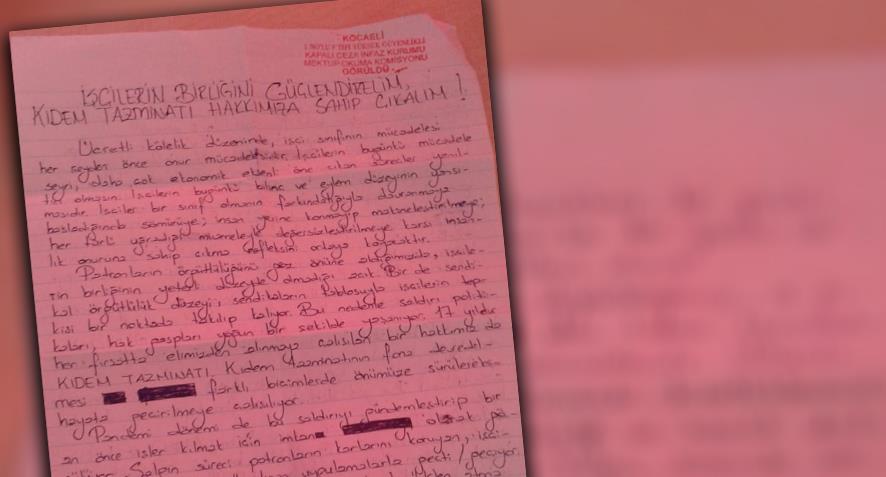 KOCAELİ
1 NOLU F TİPİ YÜKSEK GÜVENLİKLİ
KAPALI CEZA İNFAZ KURUMU
MEKTUP OKUMA KOMİSYONU
GÖRÜLDÜ
İŞÇİLERİN BİRLİĞİNİ GÜÇLENDİRELİM,
KIDEM TAZMİNATI HAKKIMIZA SAHİP ÇIKALIM!
Ücretli kölelik düzeninde, işçi sınıfının mücadelesi
her şeyden önce onur mücadelesidir. İşçilerin bugünkü mücadele
seyri, daha çok ekonomik eksenli öne çıkan süreçler yanıl-
tıcı olmasın. İşçilerin bugünkü bilinç ve eylem düzeyinin yansı-
masıdır. İşçiler bir sınıf olmanın farkındalığıyla davranmaya
başladığında sömürüye; insan yerine konmayıp makineleştirilmeye;
her türlü uğradığı muameleyle değersizleştirilmeye karşı insan-
lık onuruna sahip çıkma refleksini ortaya koyacaktır.
Patronların örgütlülüğünü göz önüne aldığımızda, işçile-
rin birliğinin yeterli düzeyde olmadığı açık. Bir de sendi-
kal örgütlülük düzeyi, sendikaların tablosuyla işçilerin tep-
kisi bir noktada takılıp kalıyor. Bu nedenle saldırı politi-
kaları, hak gaspları yoğun bir şekilde yaşanıyor. 17 yıldır
her fırsatta elimizden alınmaya çalışılan bir hakkımız da
KIDEM TAZMİNATI. Kıdem tazminatının fona devredil-
mesi farklı biçimlerde önümüze sürülerek
hayata geçirilmeye çalışılıyor.
Pandemi dönemi de bu saldırıyı gündemleştirip bir
an önce işler kılmak için olarak
Salgın süreci patronların karlarını koruyan, işçi-
uygulamalarla geçti/geçiyor.